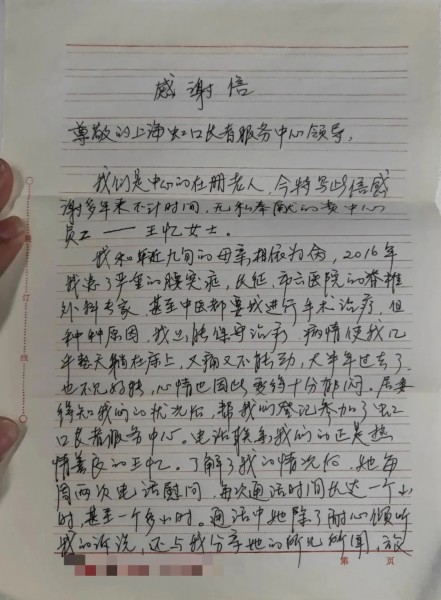 感谢信
尊敬的上海虹口长者服务中心领导：
我们是中心的在册老人，今特写此信感
谢多年来不计时间，无私奉献的贵中心
员工——王忆女士。
我和年近九旬的母亲相依为伪，2016年
我患了严重的腰突症，长征、市六医院的脊椎
外科专家，甚至中医都要我进行手术治疗，但
种种原因，我只能保守治疗，病情使我几
乎整天躺在床上，又痛又不能动，大半年过去了
也不见好转，心情也因此变得十分郁闷。居委
得知我们的状况后，帮我们登记参加了虹
口长者服务中心。电话联系我们的正是热
情善良的王忆。了解了我的情况后，她每
周两次电话慰问，每次通话时间长达一个小
时，甚至一个多小时。通话中她除了耐心倾听
我的诉说，还与我分享她的所见所闻，放
装订线
第 页